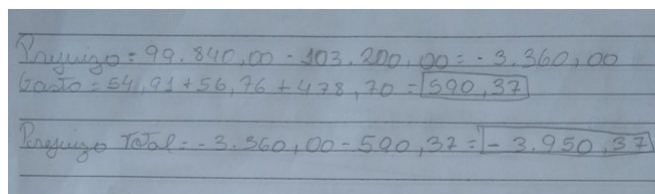 Prejuizo = 99.840,00 - 103.200,00 = - 3.360,00
Gasto = 54,91 + 56,76 + 478,70 = 590,37
Prejuizo Total = - 3.360,00 - 590,37 = - 3.950,37